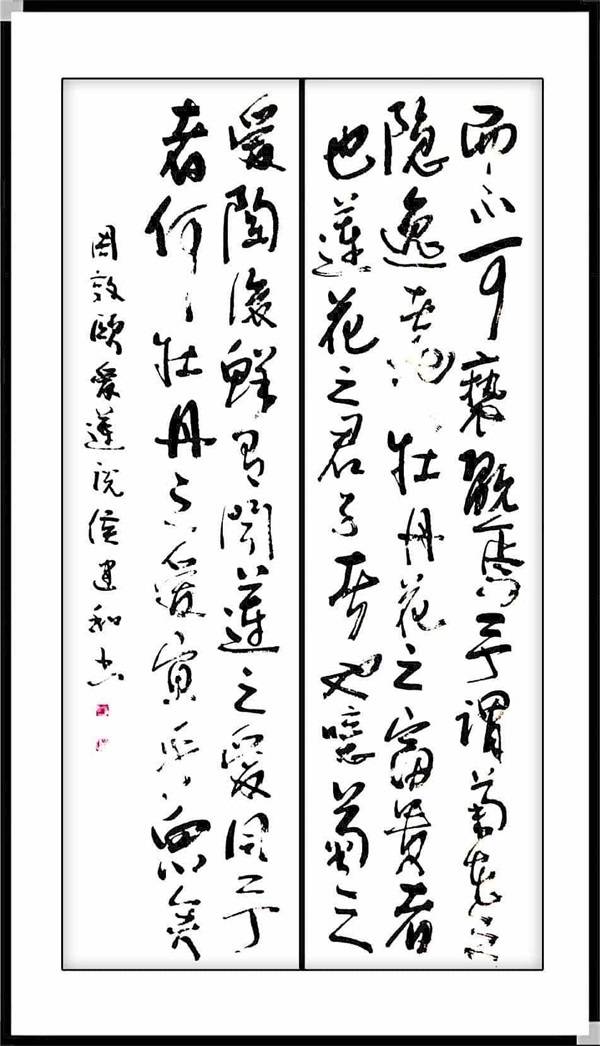 而不可褻翫焉予謂菊花之
隐逸者也牡丹花之富貴者
也蓮花之君子者也噫菊之
愛陶後鮮有聞蓮之愛同予
者何人牡丹之愛宜乎衆矣
周敦頤愛蓮説侯建和書